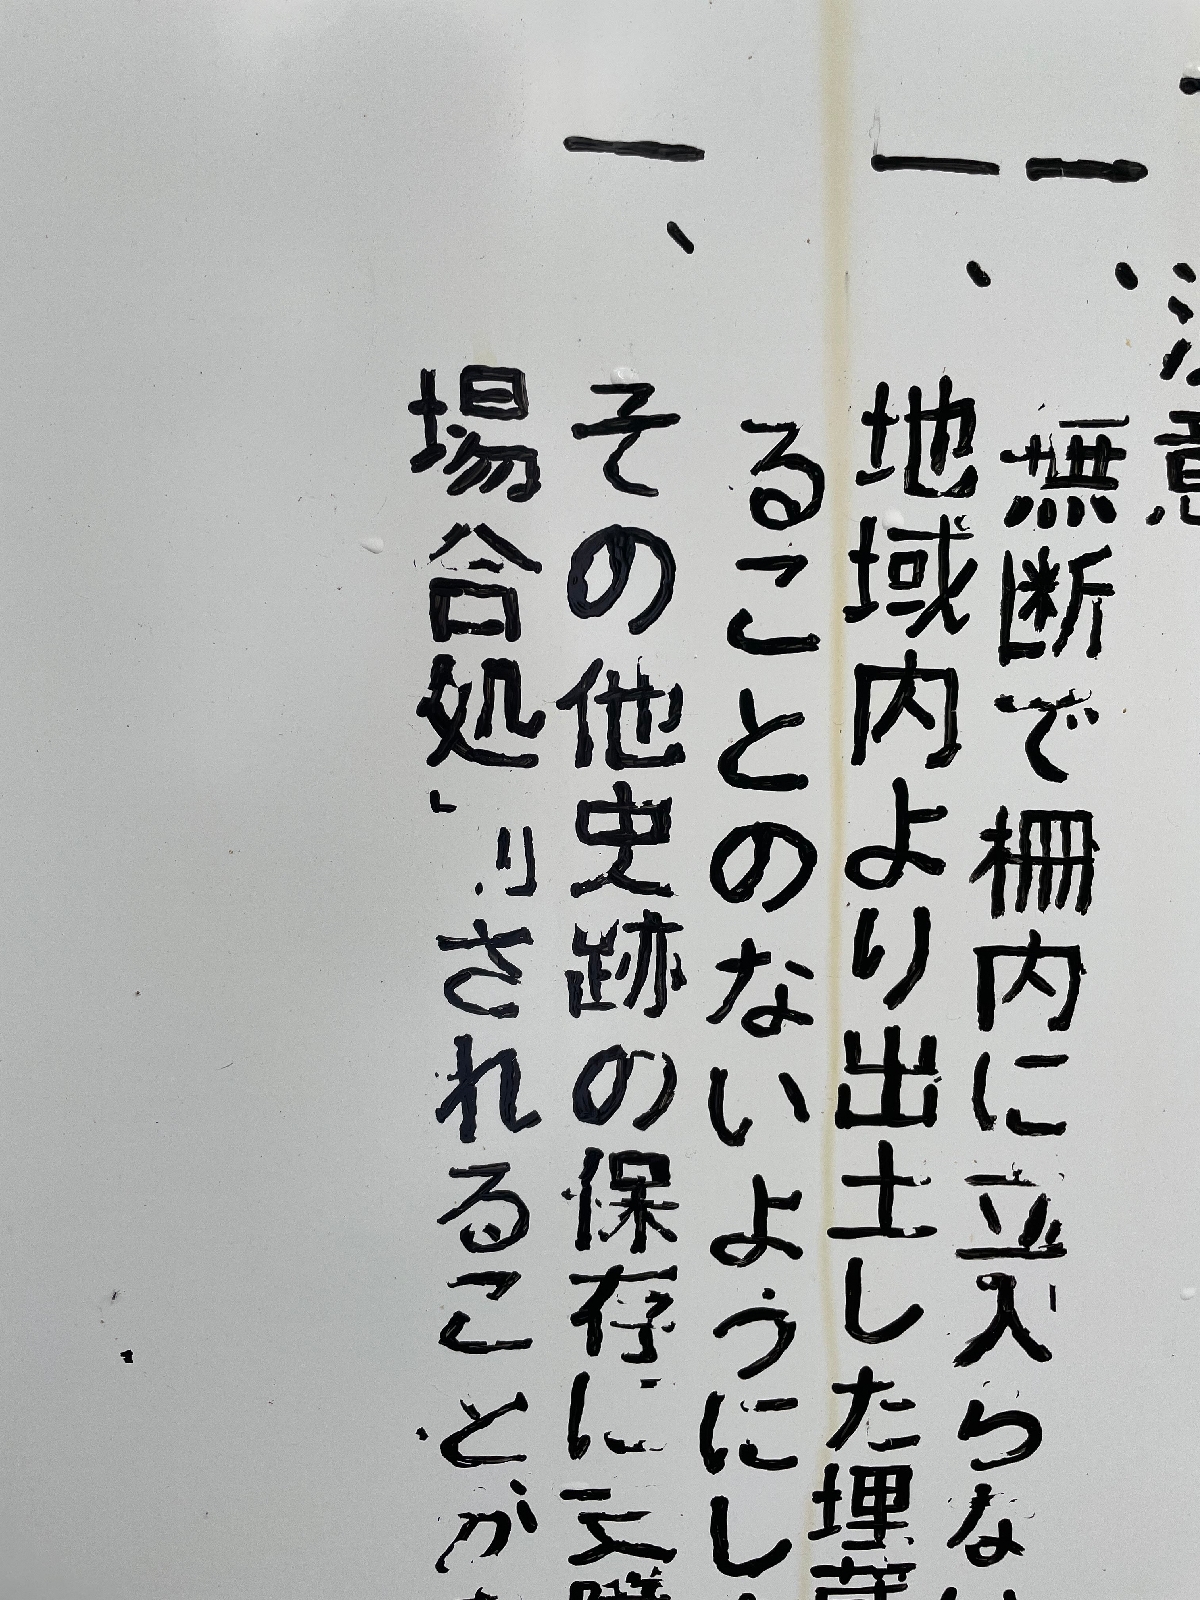 注意
一、無断で柵内に立入らな
一、地域内より出土した埋蔵
ることのないようにし
一、その他史跡の保存に
場合処 されることが